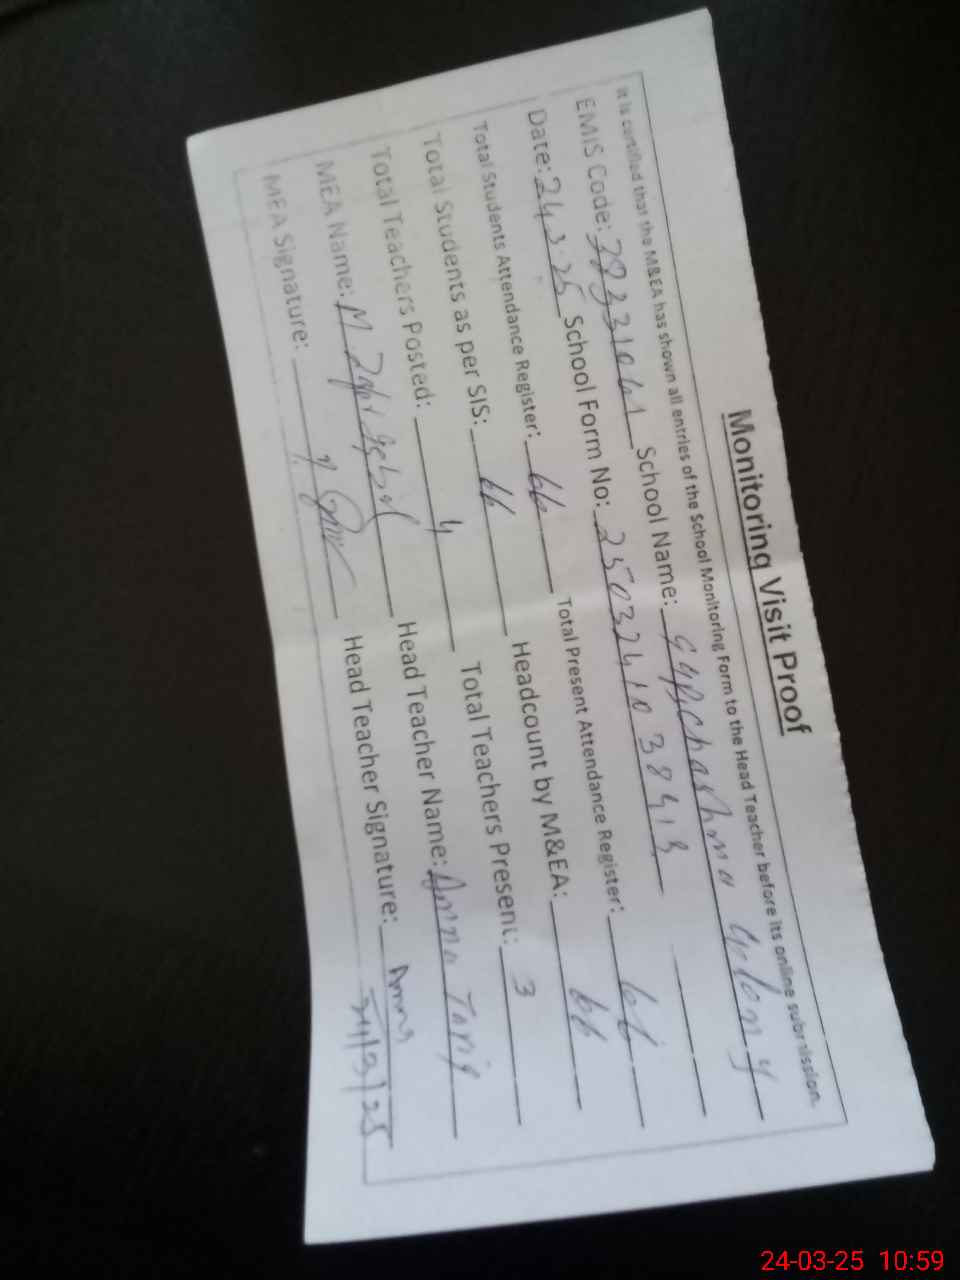 Monitoring Visit Proof
It is certified that the M&EA has shown all entries of the School Monitoring Form to the Head Teacher before its online submission.
EMIS Code: 38231041 School Name: Chashma Colony
Date: 24.3.25 School Form No: 2503241038413
Total Students Attendance Register: 66 Total Present Attendance Register: 66
Total Students as per SIS: 66 Headcount by M&EA: 66
Total Teachers Posted: 4 Total Teachers Present: 3
MEA Name: M Zafar Head Teacher Name: Amna Tariq
MEA Signature: Head Teacher Signature: Amna
24/3/25
24-03-25 10:59